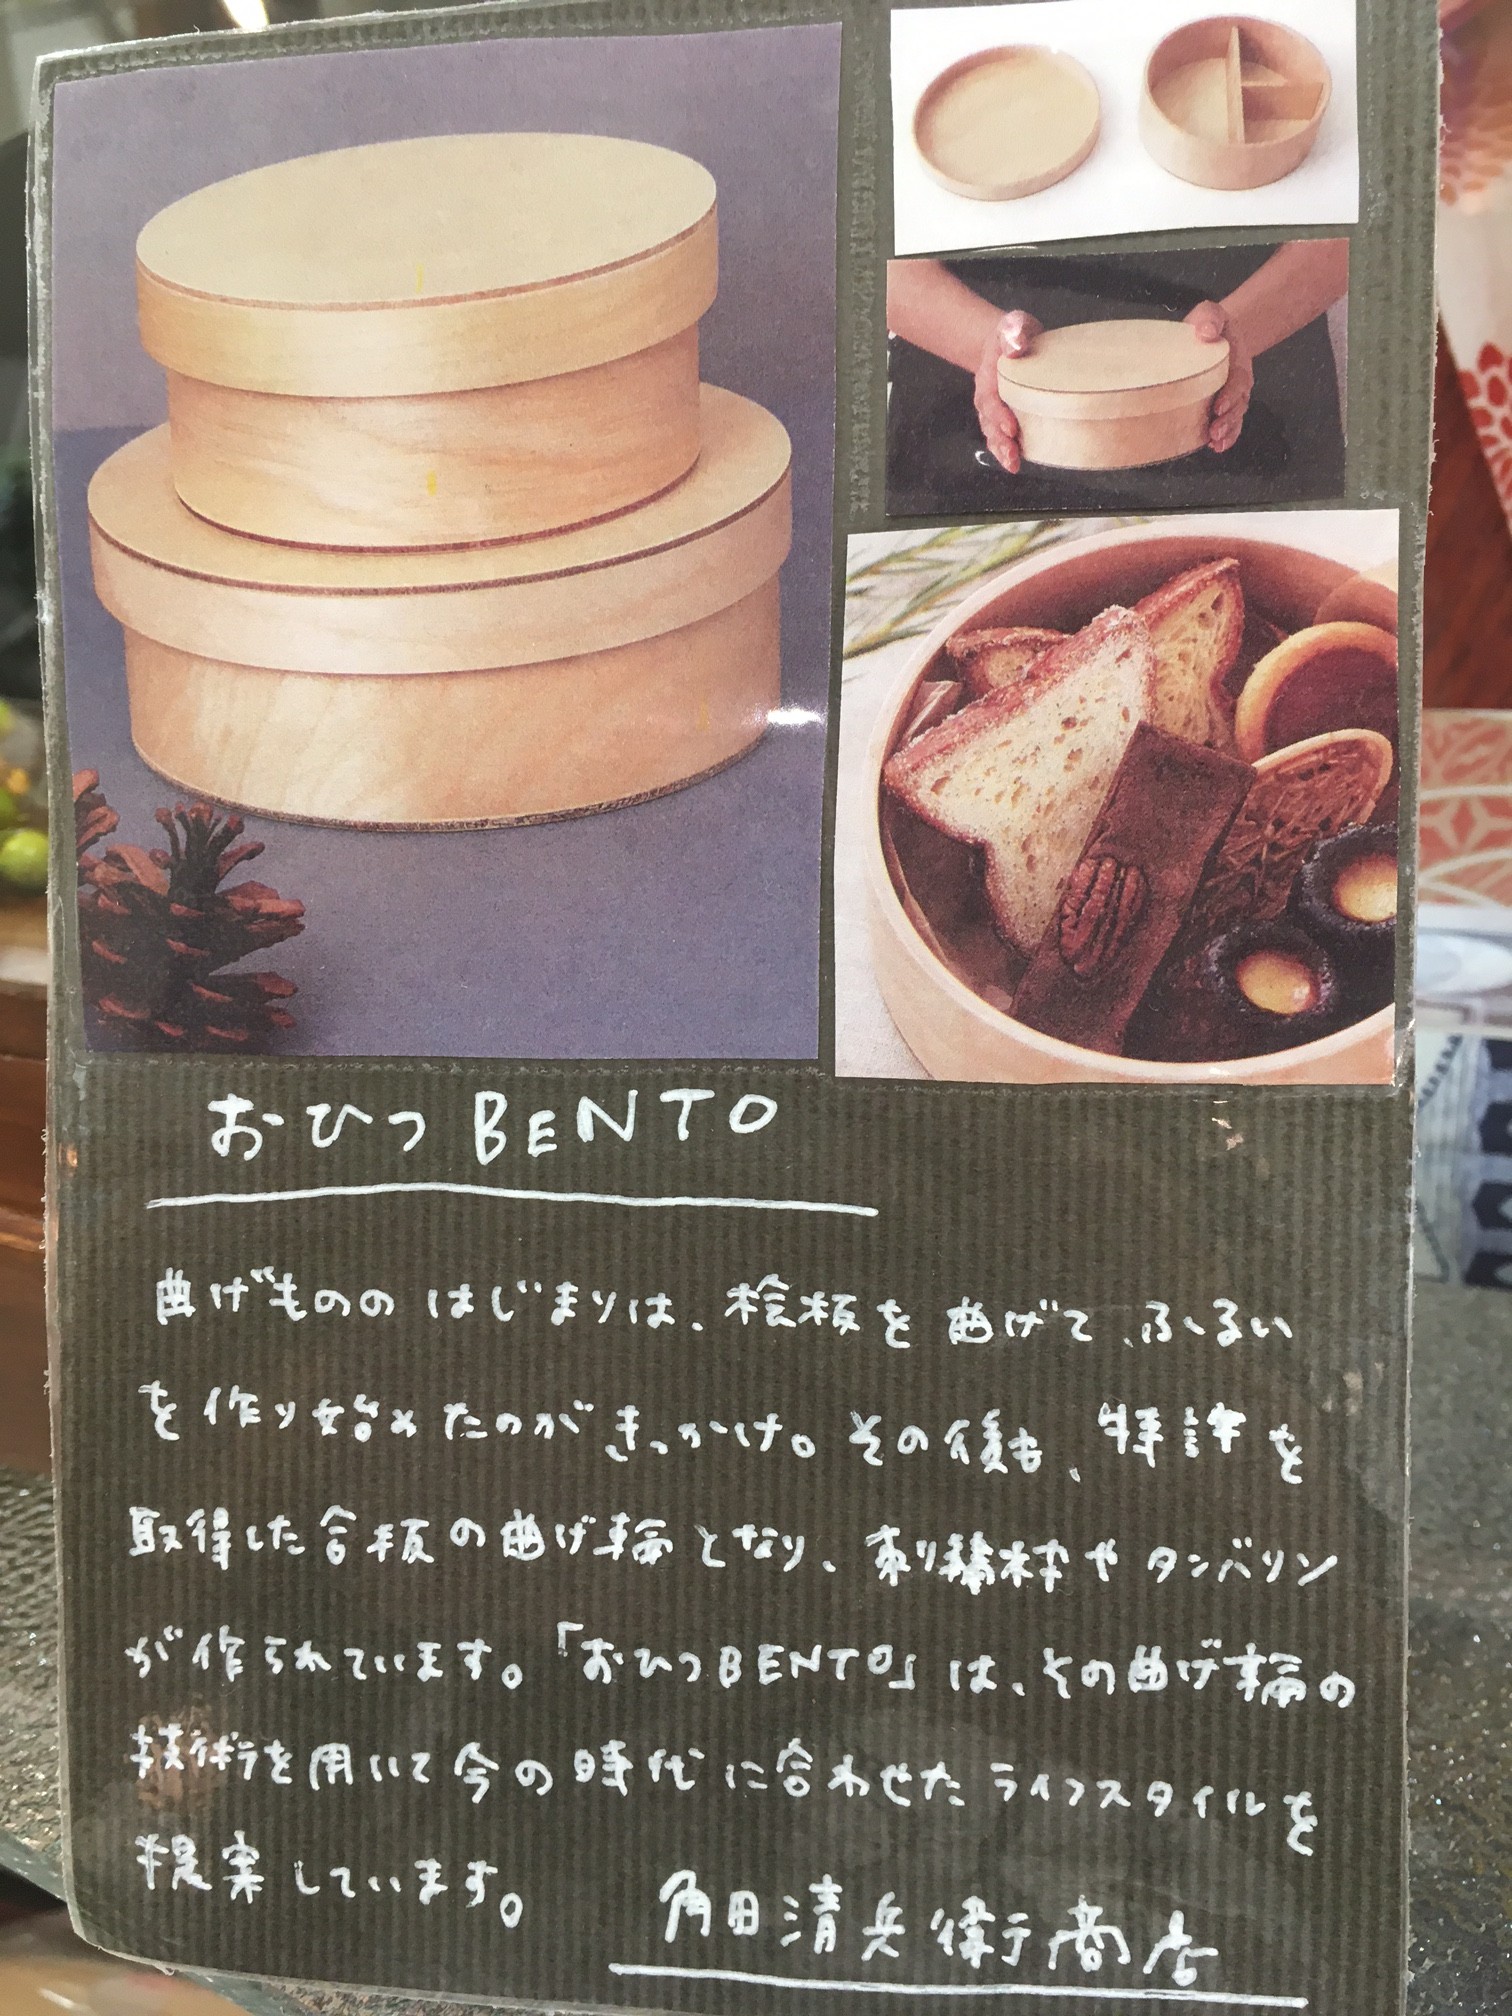 おひつ BENTO
曲げもののはじまりは、桧板を曲げて、ふるい
を作り始めたのがきっかけ。その後も、特許を
取得した合板の曲げ輪となり、刺繍枠やタンバリン
が作られています。「おひつBENTO」は、その曲げ輪の
技術を用いて今の時代に合わせたライフスタイルを
提案しています。
角田清兵衛商店